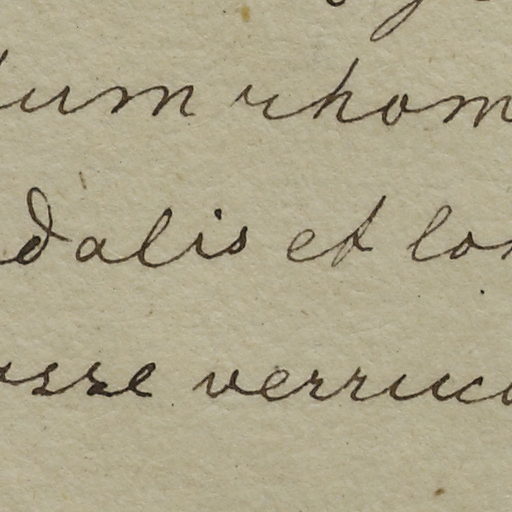 um rhom
dalis et lon
sse verruco